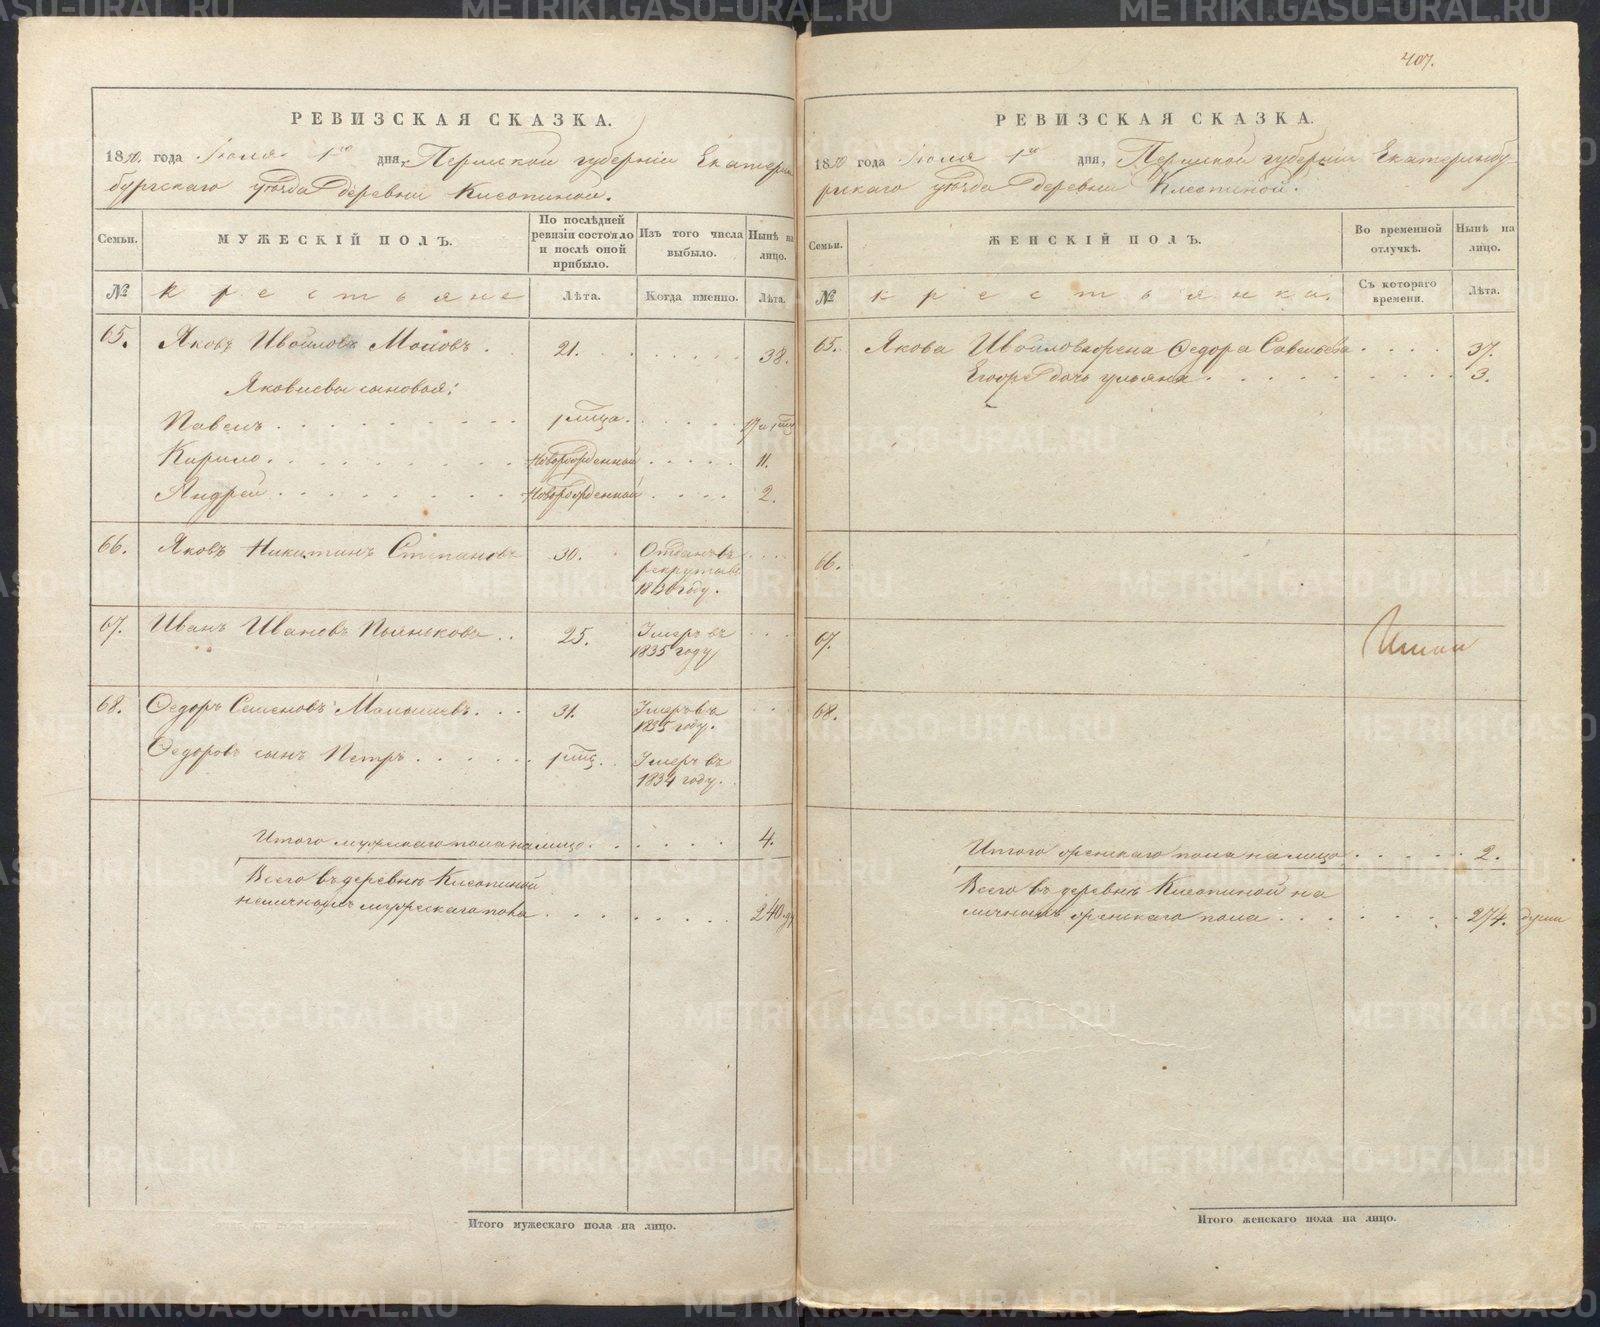 РЕВИЗСКАЯ СКАЗКА.
1850 года Іюля 1го дня, Пермской губерніи Екатерин
бургскаго уѣзда деревни Кисопиной.
Семьи.
МУЖЕСКІЙ ПОЛЪ.
По послѣдней ревизіи состояло и послѣ оной прибыло.
Изъ того числа выбыло.
Нынѣ на лицо.
№
Крестьяне
Лѣта.
Когда именно.
Лѣта.
65. Яковъ Ивойловъ 21. 38.
Яковлевы сыновья:
Павелъ 1 мѣсяца.
Кирило Новорожденной 11.
Андрей Новорожденной 2.
66. Яковъ Никитинъ Степановъ 30. Отданъ въ
рекруты въ
1830 году.
67. Иванъ Ивановъ Пьянковъ 25. Умеръ въ
1835 году
68. Ѳедоръ Семеновъ Малышевъ 31. Умеръ въ
1835 году.
Ѳедоровъ сынъ Петръ 1 мѣс. Умеръ въ
1834 году.
Итого мужескаго пола на лицо 4.
Всего въ деревнѣ Кисопиной
наличныхъ мужескаго пола 240 ду
Итого мужескаго пола на лицо.
407.
РЕВИЗСКАЯ СКАЗКА.
1850 года Іюля 1го дня, Пермской губерніи Екатеринбу-
ргскаго уѣзда деревни Кисопиной.
Семьи.
ЖЕНСКІЙ ПОЛЪ.
Во временной отлучкѣ.
Нынѣ на лицо.
№
Крестьянки.
Съ котораго времени.
Лѣта.
65. Якова Ивойлова жена Ѳедора Савельева 37.
дочь Ульяна 3.
66.
67.
68.
Итого женскаго пола на лицо 2.
Всего въ деревнѣ Кисопиной на
личныхъ женскаго пола 274. души
Итого женскаго пола на лицо.
METRIKI.GASO-URAL.RU